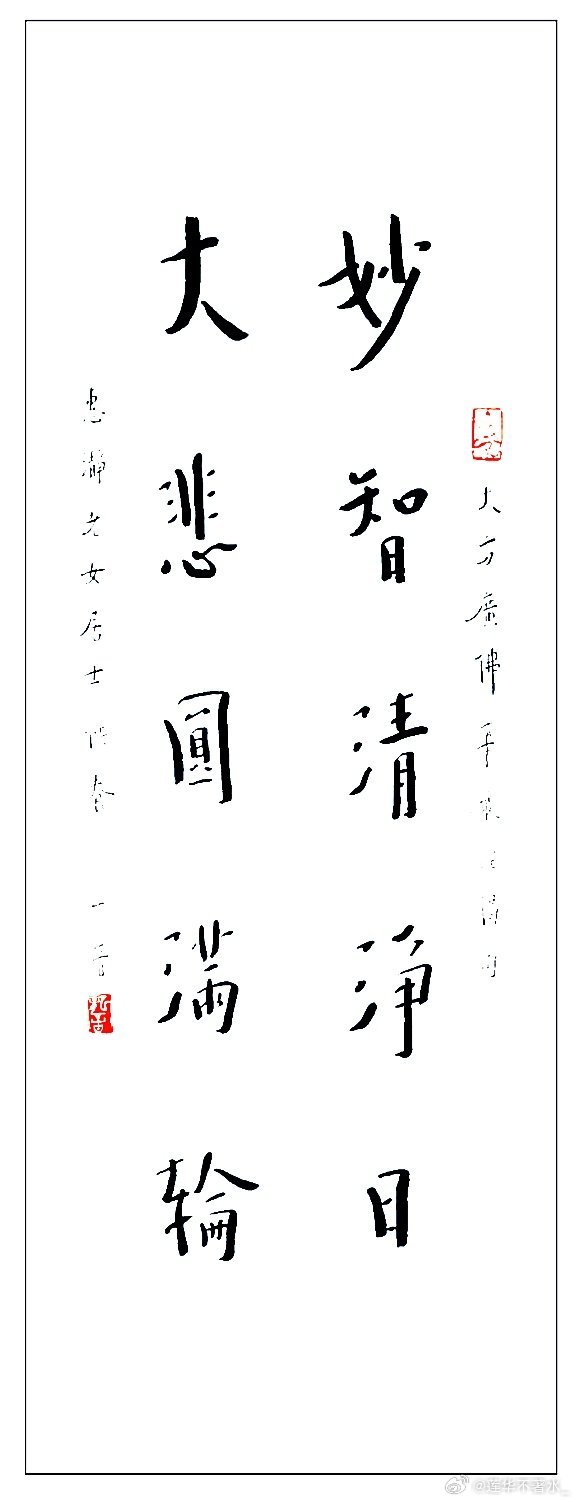 大方廣佛華嚴經偈句
妙智清淨日
大悲圓滿輪
老女居士供養 一音
@莲华不著水_